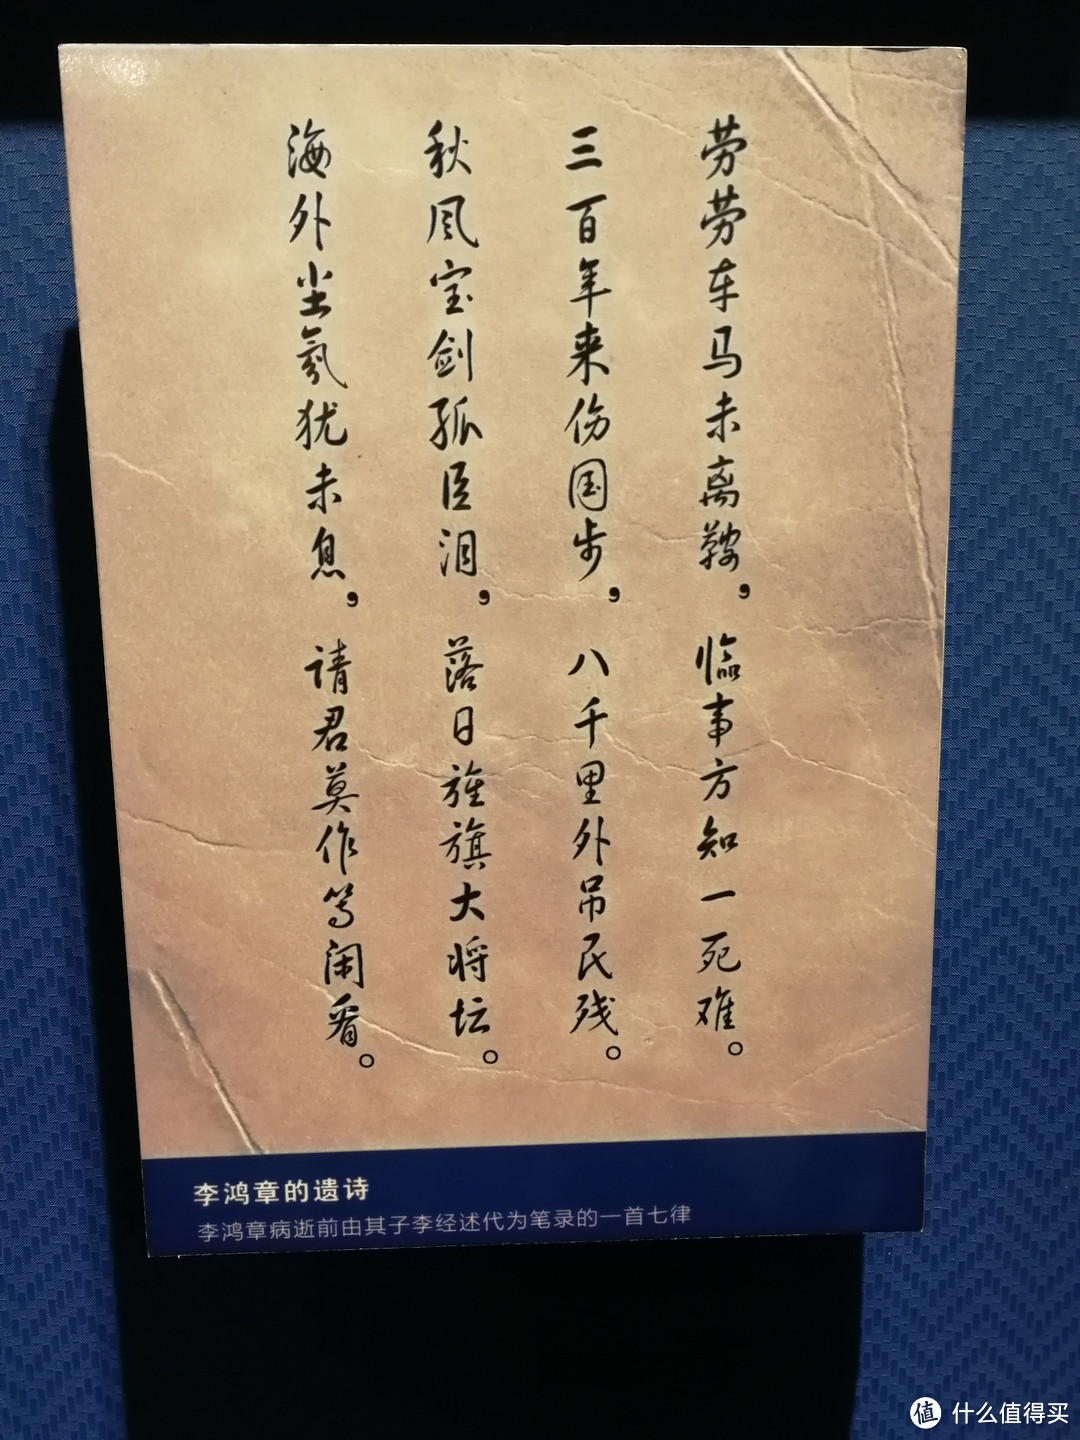 劳劳车马未离鞍，临事方知一死难。
三百年来伤国步，八千里外吊民残。
秋风宝剑孤臣泪，落日旌旗大将坛。
海外尘氛犹未息，请君莫作等闲看。
李鸿章的遗诗
李鸿章病逝前由其子李经述代为笔录的一首七律
值 什么值得买